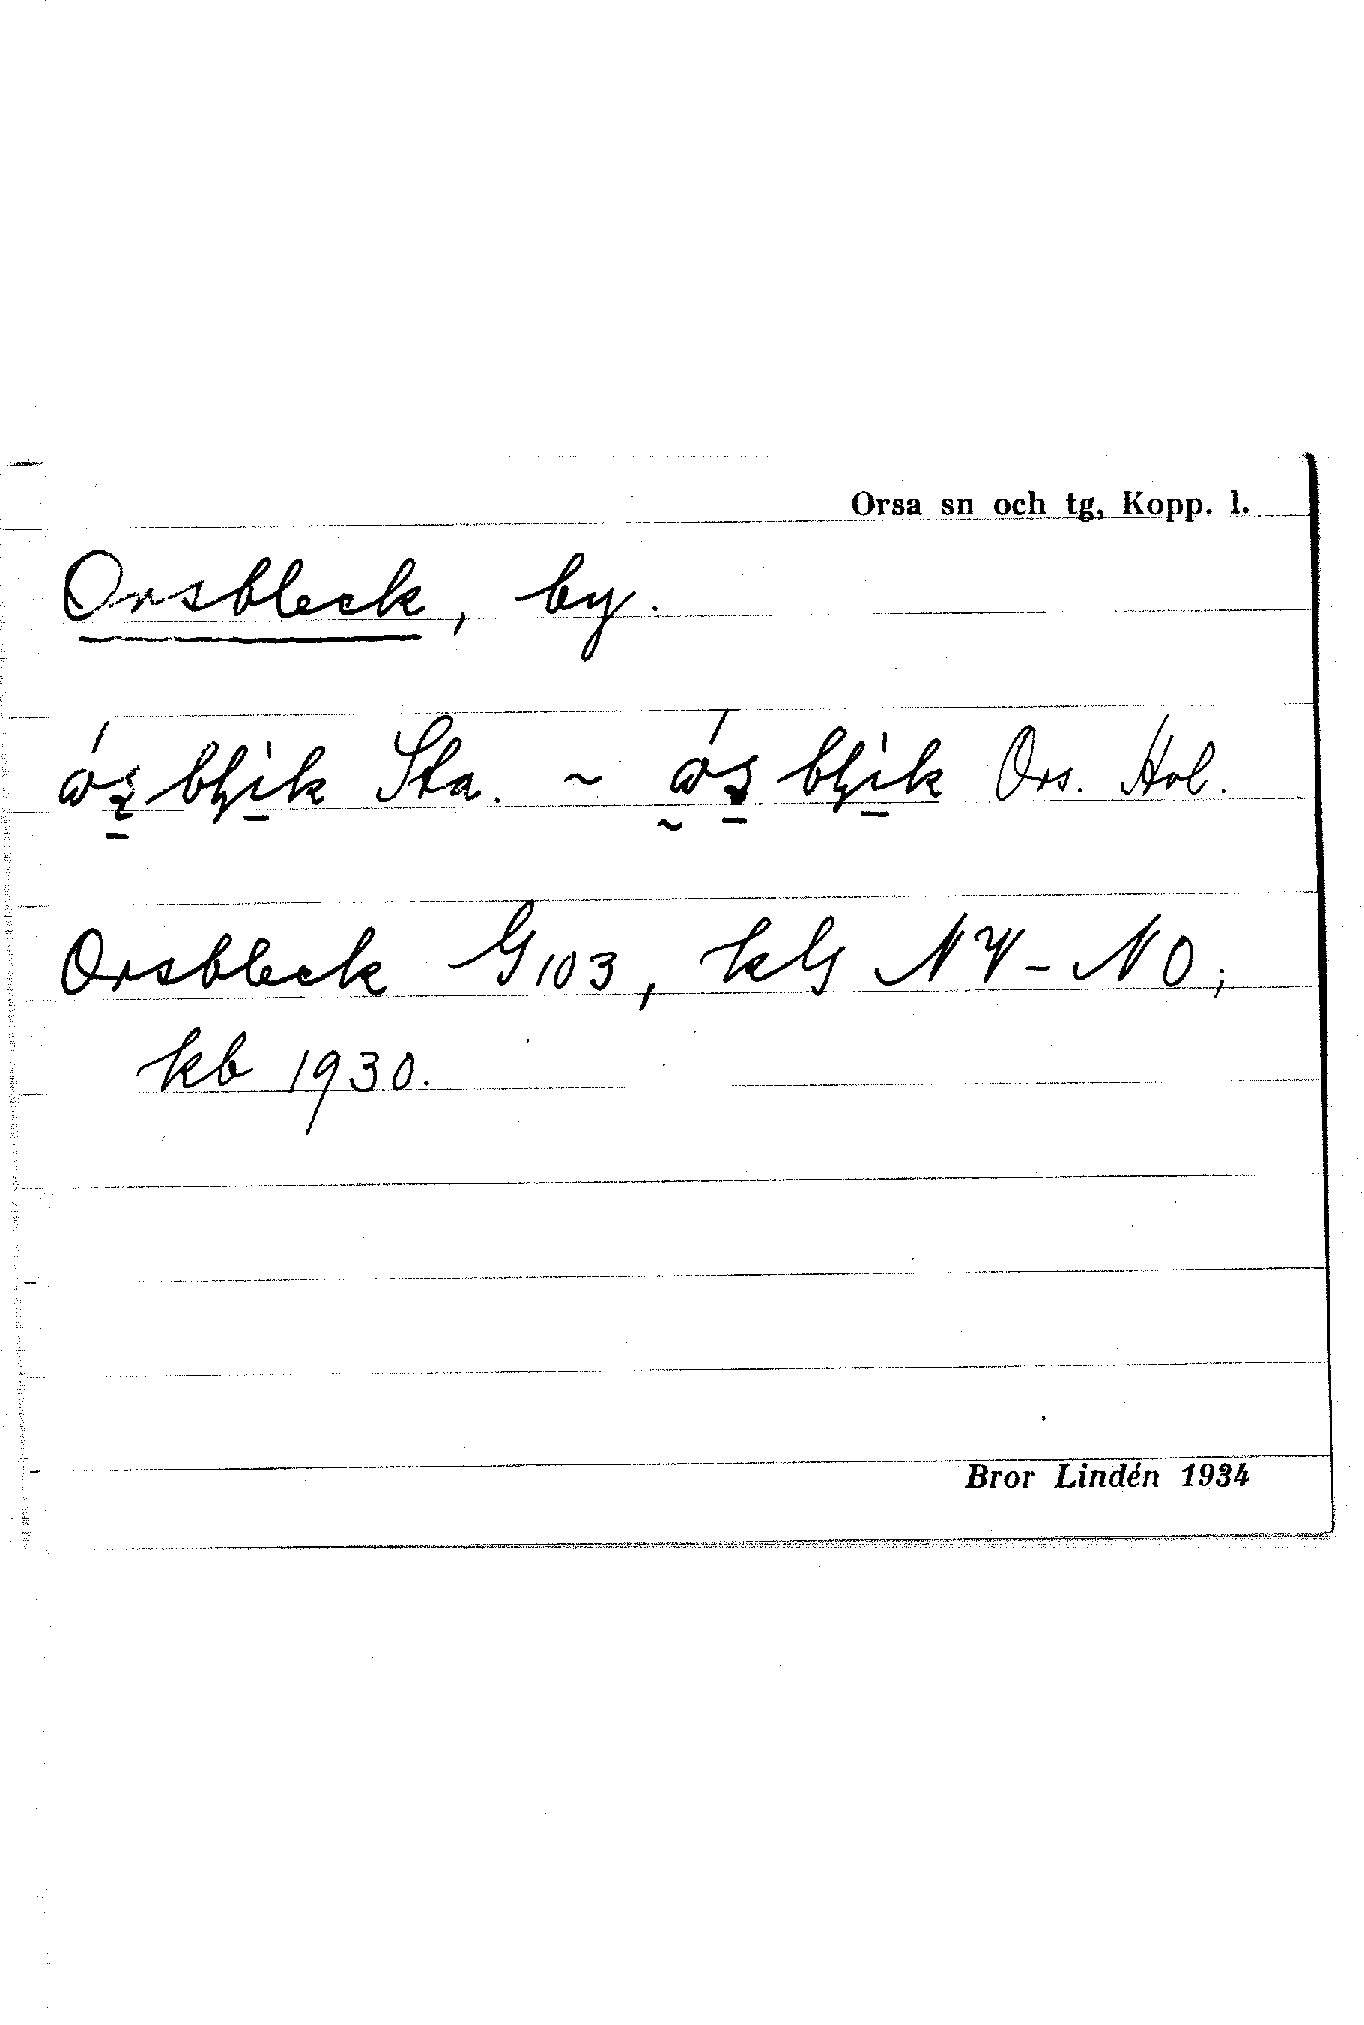 Orsa sn och tg, Kopp. l.
Orsbleck, by.
Sta. ~ Ors. Hol.
Orsbleck G103, kls NV-NO;
kb 1930.
Bror Lindén 1934